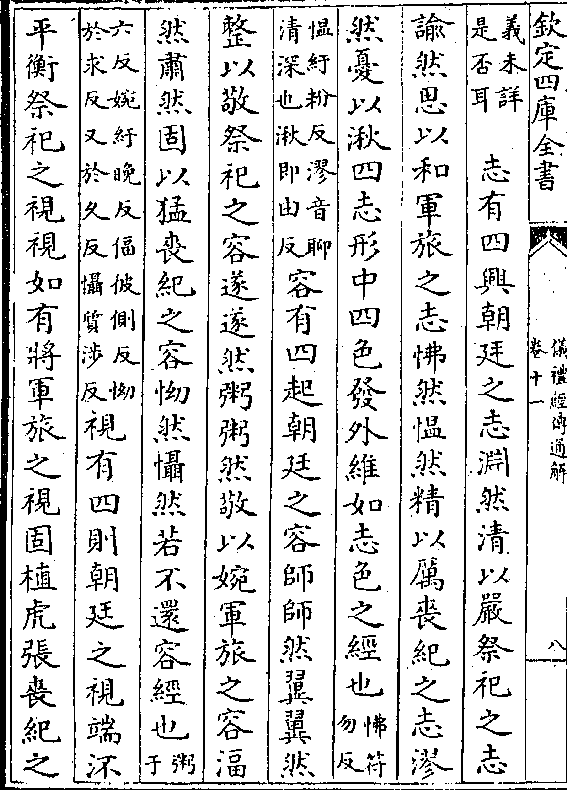 欽定四庫全書
儀禮經傳通解
卷十一
八
義未詳
是否耳
志有四興朝廷之志淵然清以嚴祭祀之志
諭然思以和軍旅之志怫然愠然精以厲喪紀之志漻
然憂以湫四志形中四色發外維如志色之經也
怫符
勿反
愠紆粉反漻音聊
清深也湫即由反
容有四起朝廷之容師師然翼翼然
整以敬祭祀之容遂遂然粥粥然敬以婉軍旅之容湢
然肅然固以猛喪紀之容怮然懾然若不還容經也
粥
于
六反婉紆晚反偪彼側反怮
於求反又於久反懾質涉反
視有四則朝廷之視端沠
平衡祭祀之視視如有將軍旅之視固植虎張喪紀之